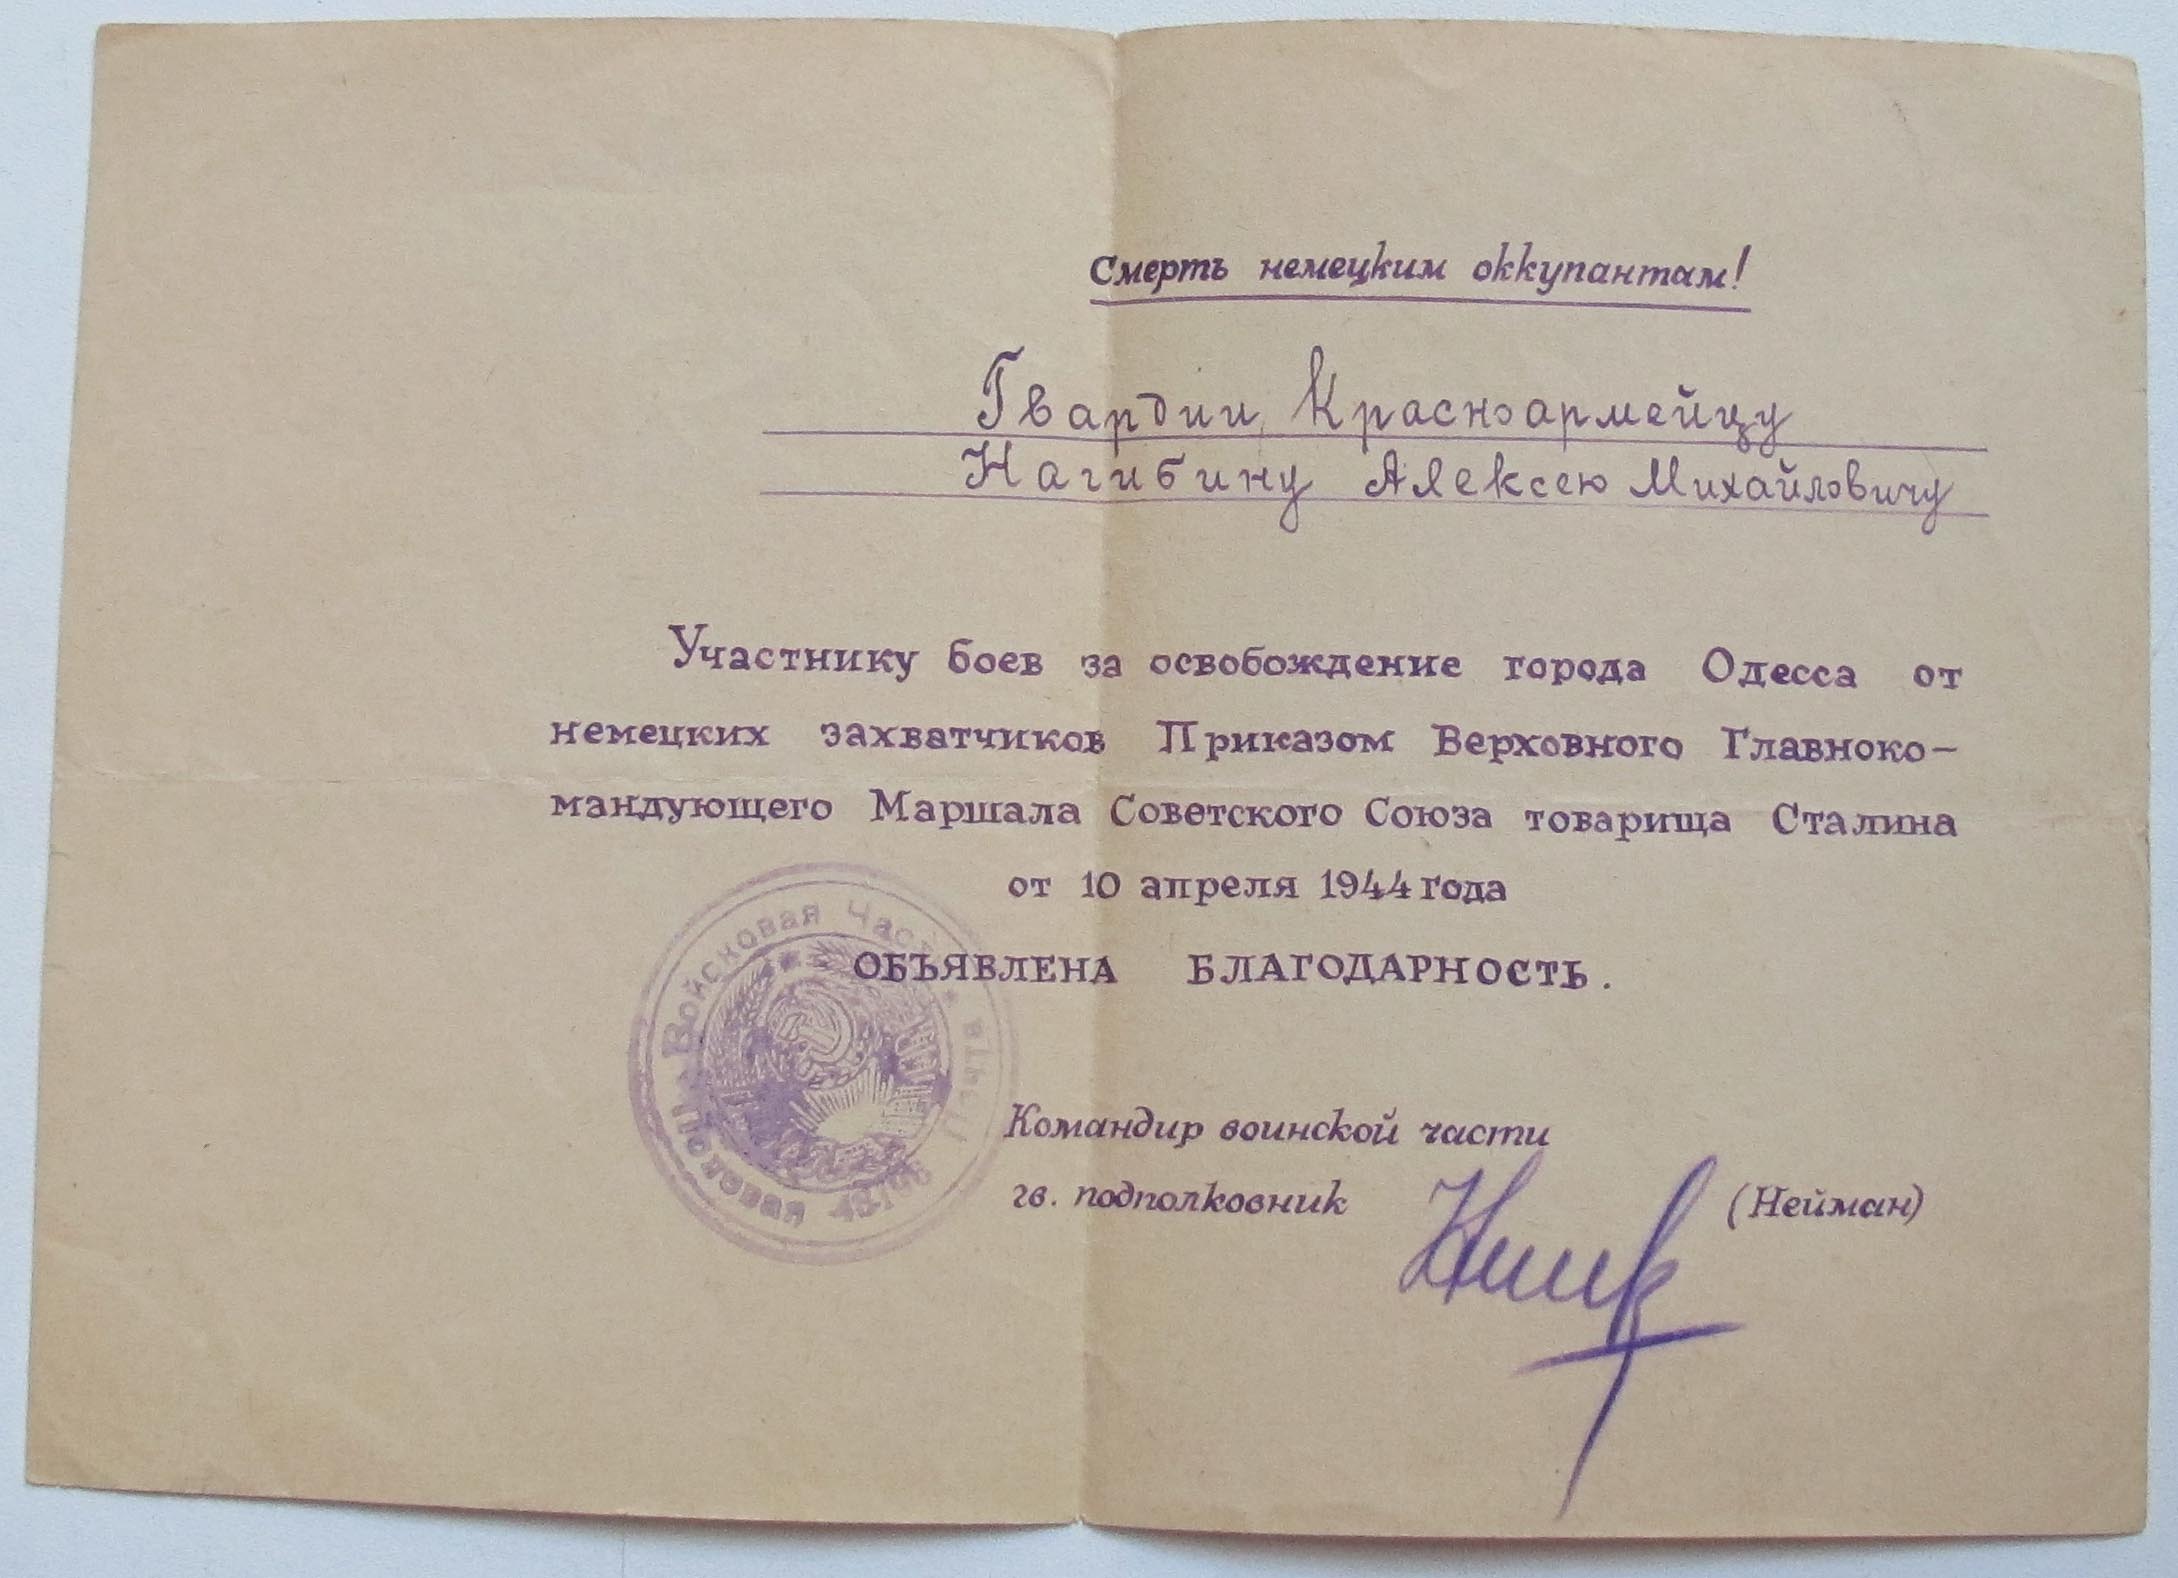 Смерть немецким оккупантам!
Гвардии Красноармейцу
Нагибину Алексею Михайловичу
Участнику боев за освобождение города Одесса от
немецких захватчиков Приказом Верховного Главноко-
мандующего Маршала Советского Союза товарища Сталина
от 10 апреля 1944 года
ОБЪЯВЛЕНА БЛАГОДАРНОСТЬ.
Войсковая Часть
Полевая почта
Командир воинской части
гв. подполковник (Нейман)